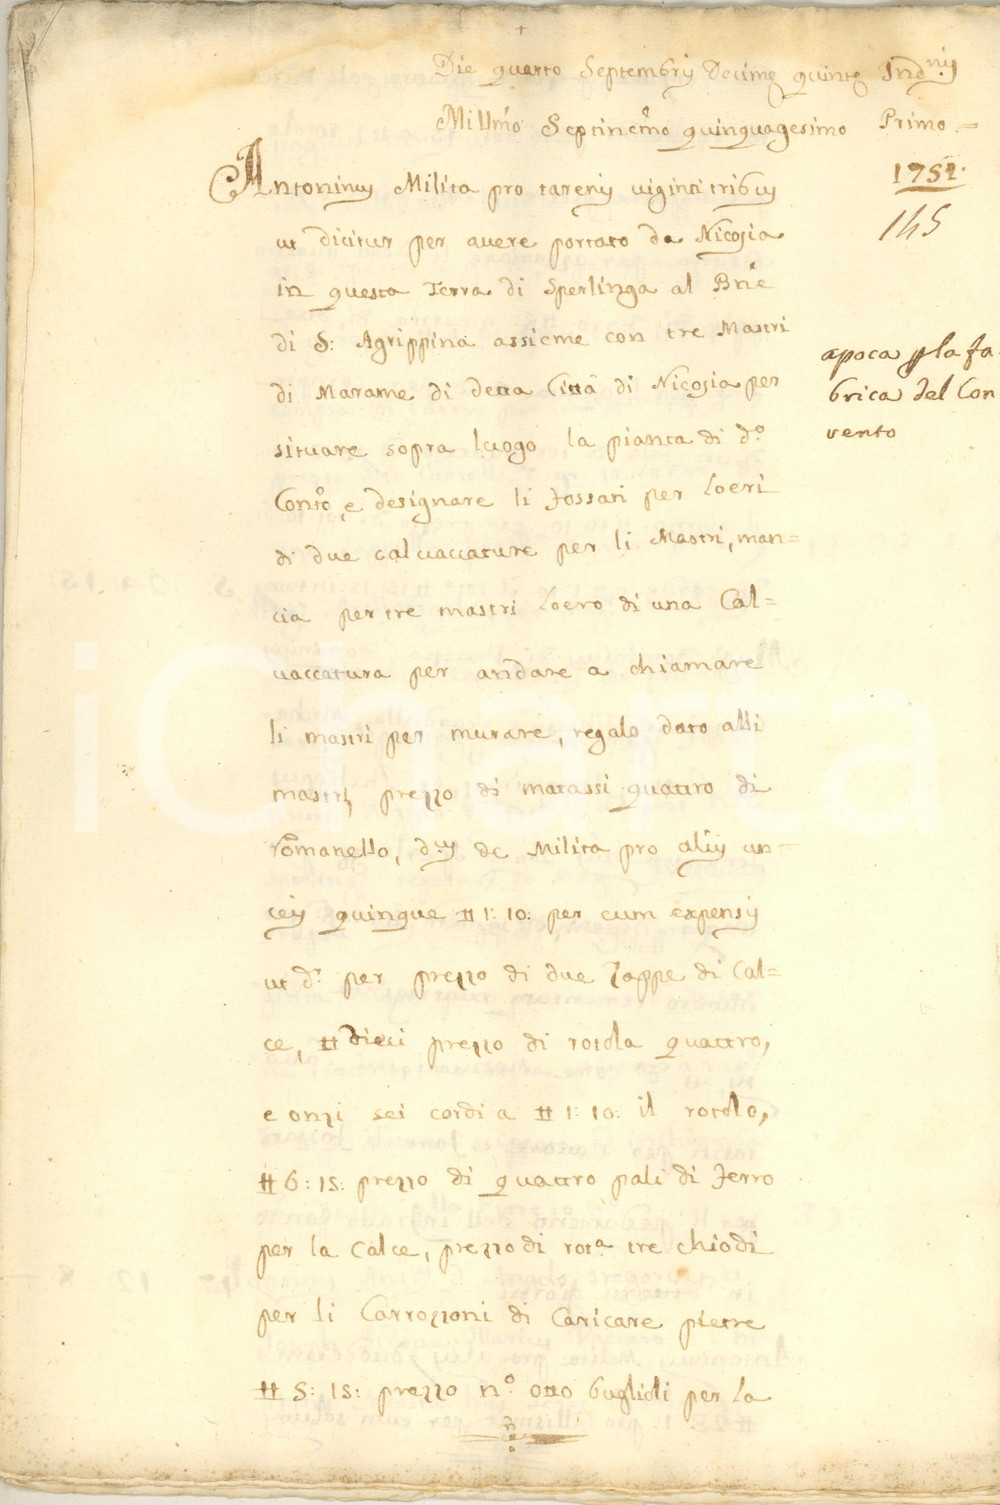 Die quarto Septembrij Decime quinte Ind.nis
Mill.mo Septincen.mo quinquagesimo Primo =
1751.
145
Antoninus Milita pro tarenis viginti tribus
ut dicitur per avere portato da Nicosia
in questa Terra di Sperlinga al Bn.e
di S: Agrippina assieme con tre Mastri
di Marame di detta Città di Nicosia per
situare sopra luogo la pianta di d.o
Con.to, e designare li fossati per loeri
di due calvaccature per li Mastri, man=
cia per tre mastri Loero di una Cal=
vaccatura per andare a chiamare
li mastri per murare, regalo dato alli
mastri, prezzo di matassi quattro di
romanello, d.us de Milita pro aliis un=
ceis quinque # 1: 10: per eum expensis
ut d.r per prezzo di due Zappe di Cal=
ce, # dieci prezzo di rotola quattro,
e onzi sei cordi a # 1: 10: il rotolo,
# 6: 15: prezzo di quattro pali di ferro
per la Calce, prezzo di rot.a tre chiodi
per li Carrozzoni di Caricare pietre
# 5: 15: prezzo n.o otto buglioli per la
apoca p la fa
brica del Con
vento
iCharta